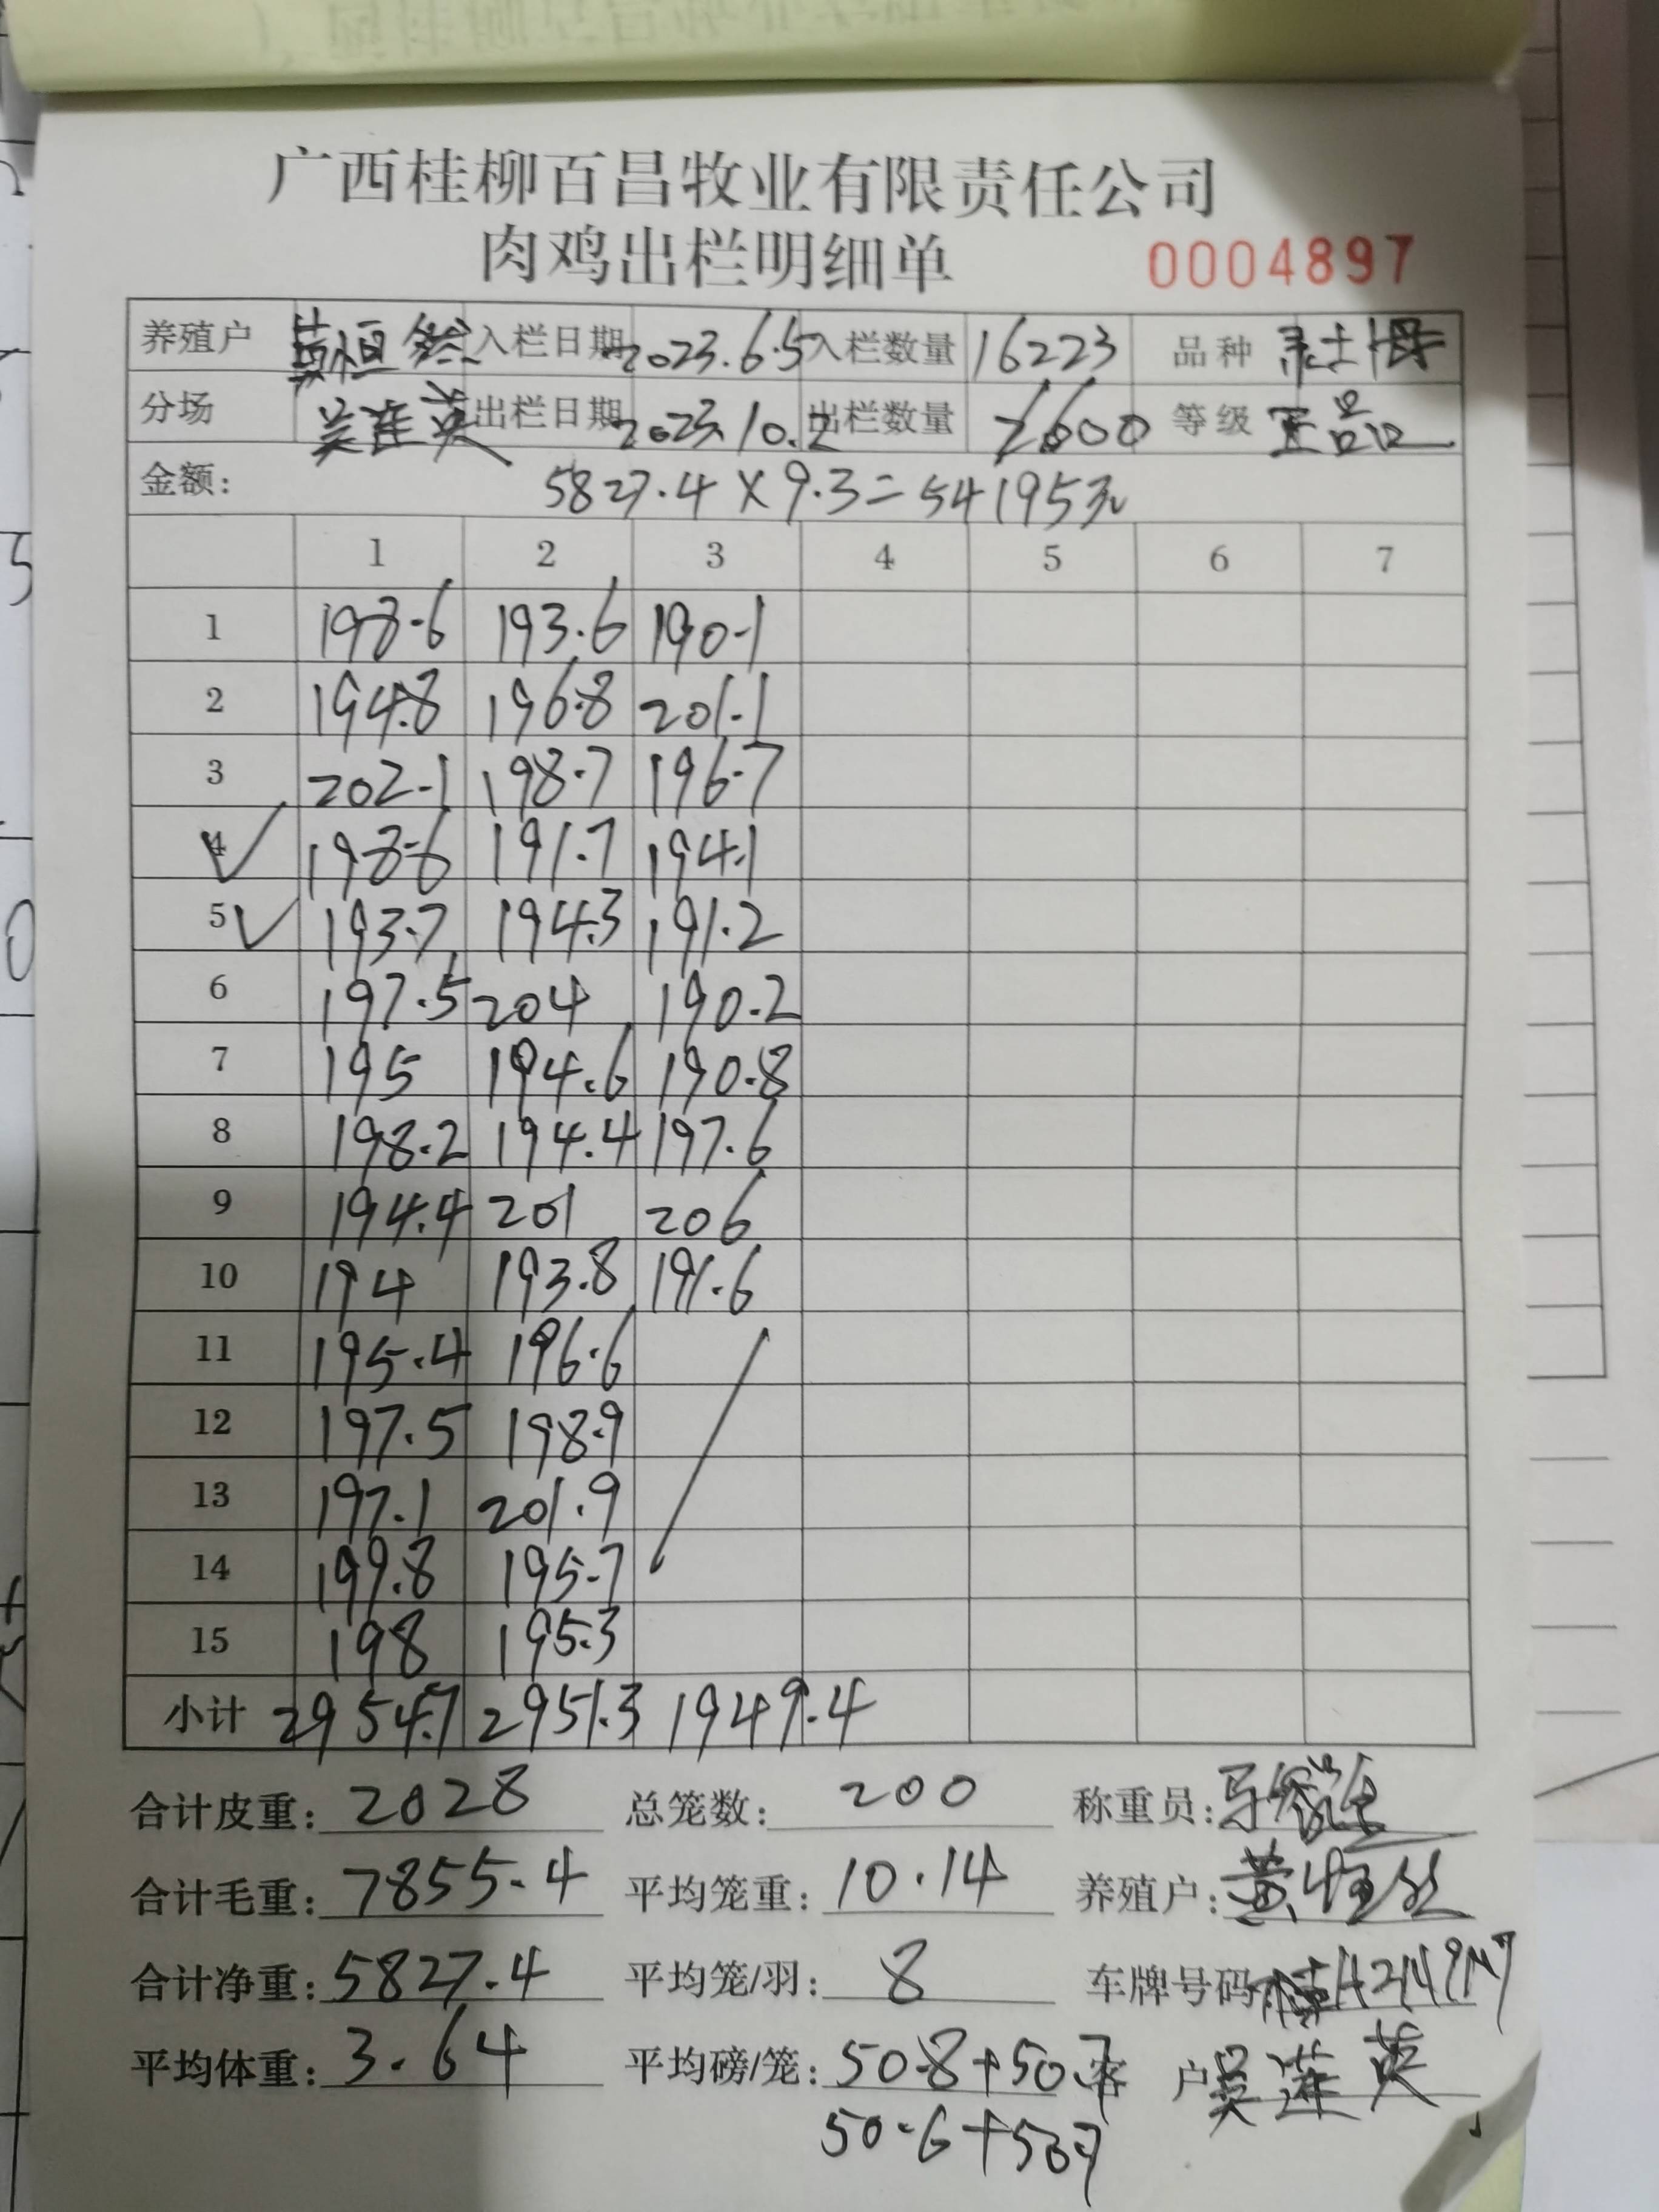 广西桂柳百昌牧业有限责任公司
肉鸡出栏明细单 0004897
养殖户 入栏日期 2023.6.5 入栏数量 16223 品种
分场 吴莲英 出栏日期 2023.10.2 出栏数量 1600 等级 正品
金额: 5827.4×9.3=54195元
1 2 3 4 5 6 7
1 198.6 193.6 190.1
2 194.8 196.8 201.1
3 202.1 198.7 196.7
4 198.6 191.7 194.1
5 193.7 194.3 191.2
6 197.5 204 190.2
7 195 194.6 190.8
8 198.2 194.4 197.6
9 194.4 201 206
10 194 193.8 191.6
11 195.4 196.6
12 197.5 198.9
13 197.1 201.9
14 199.8 195.7
15 198 195.3
小计 2954.7 2951.3 1949.4
合计皮重: 2028 总笼数: 200 称重员:
合计毛重: 7855.4 平均笼重: 10.14 养殖户:
合计净重: 5827.4 平均笼/羽: 8 车牌号码:
平均体重: 3.64 平均磅/笼: 50.8+50.7 客户 吴莲英
50.6+50.7